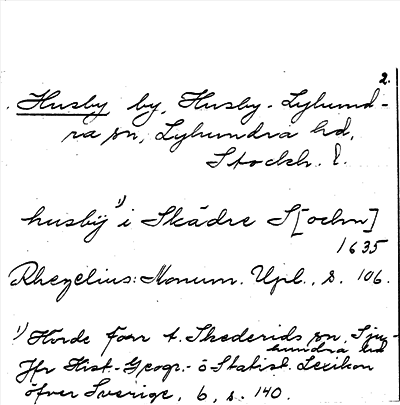 2.
Husby by, Husby-Lyhund-
ra sn, Lyhundra hd,
Stockh. l.
husbÿ¹⁾ i Skädre S[ochn]
1635
Rhezelius: Monum. Upl., s. 106.
¹⁾ Horde förr t. Skederids sn, Sju-
hundra hd
Jfr Hist.-Geogr.- o Statist. Lexikon
öfver Sverige, 6, s. 140.